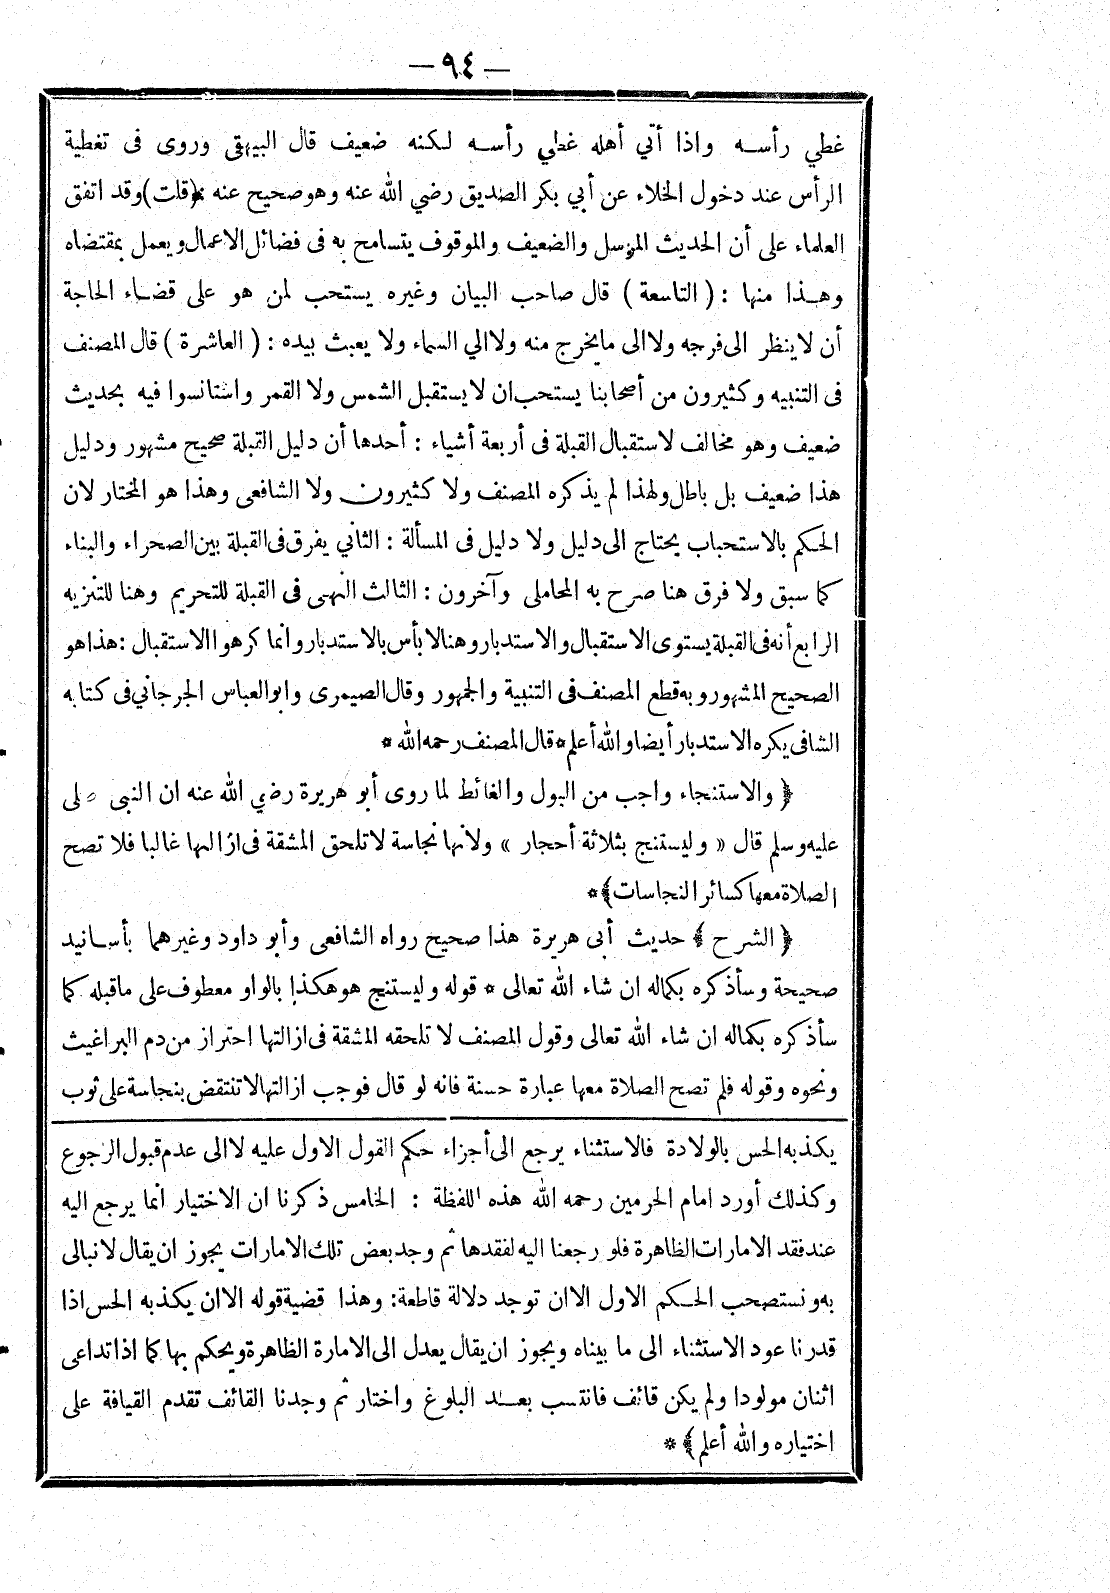 — ٩٤ —
غطي رأسه واذا أتي أهله غطي رأسه لكنه ضعيف قال البيهقى وروى فى تغطية
الرأس عند دخول الخلاء عن أبي بكر الصديق رضي الله عنه وهو صحيح عنه (قلت) وقد اتفق
العلماء على أن الحديث المرسل والضعيف والموقوف يتسامح به فى فضائل الاعمال ويعمل بمقتضاه
وهذا منها : ( التاسعة ) قال صاحب البيان وغيره يستحب لمن هو على قضاء الحاجة
أن لا ينظر الى فرجه ولا الى ما يخرج منه ولا الي السماء ولا يعبث بيده : ( العاشرة ) قال المصنف
فى التنبيه وكثيرون من أصحابنا يستحب ان لا يستقبل الشمس ولا القمر واستانسوا فيه بحديث
ضعيف وهو مخالف لاستقبال القبلة فى أربعة أشياء : أحدها أن دليل القبلة صحيح مشهور ودليل
هذا ضعيف بل باطل ولهذا لم يذكره المصنف ولا كثيرون ولا الشافعى وهذا هو المختار لان
الحكم بالاستحباب يحتاج الى دليل ولا دليل فى المسألة : الثاني يفرق فى القبلة بين الصحراء والبناء
كما سبق ولا فرق هنا صرح به المحاملى وآخرون : الثالث النهى فى القبلة للتحريم وهنا للتنزيه
الرابع أنه فى القبلة يستوى الاستقبال والاستدبار وهنا لا بأس بالاستدبار وانما كرهوا الاستقبال : هذا هو
الصحيح المشهور وبه قطع المصنف فى التنبية والجمهور وقال الصيمرى وابو العباس الجرجاني فى كتابه
الشافى يكره الاستدبار أيضا والله أعلم * قال المصنف رحمه الله *
﴿ والاستنجاء واجب من البول والغائط لما روى أبو هريرة رضي الله عنه ان النبى
عليه وسلم قال « وليستنج بثلاثة أحجار » ولانها نجاسة لا تلحق المشقة فى ازالتها غالبا فلا تصح
الصلاة معها كسائر النجاسات ﴾ *
﴿ الشرح ﴾ حديث أبى هريرة هذا صحيح رواه الشافعى وأبو داود وغيرهما بأسانيد
صحيحة وسأذكره بكماله ان شاء الله تعالى * قوله وليستنج هو هكذا بالواو معطوف على ما قبله كما
سأذكره بكماله ان شاء الله تعالى وقول المصنف لا تلحقه المشقة فى ازالتها احتراز من دم البراغيث
ونحوه وقوله فلم تصح الصلاة معها عبارة حسنة فانه لو قال فوجب ازالتها لا تنتقض بنجاسة على ثوب
يكذبه الحس بالولادة فالاستثناء يرجع الى أجزاء حكم القول الاول عليه لا الى عدم قبول الرجوع
وكذلك أورد امام الحرمين رحمه الله هذه اللفظة : الخامس ذكرنا ان الاختيار انما يرجع اليه
عند فقد الامارات الظاهرة فلو رجعنا اليه لفقدها ثم وجد بعض تلك الامارات يجوز ان يقال لا نبالى
به ونستصحب الحكم الاول الا ان توجد دلالة قاطعة : وهذا قضية قوله الا ان يكذبه الحس اذا
قدرنا عود الاستثناء الى ما بيناه ويجوز ان يقال يعدل الى الامارة الظاهرة ويحكم بها كما اذا تداعى
اثنان مولودا ولم يكن قائف فانتسب بعد البلوغ واختار ثم وجدنا القائف تقدم القيافة على
اختياره والله أعلم ﴾ *